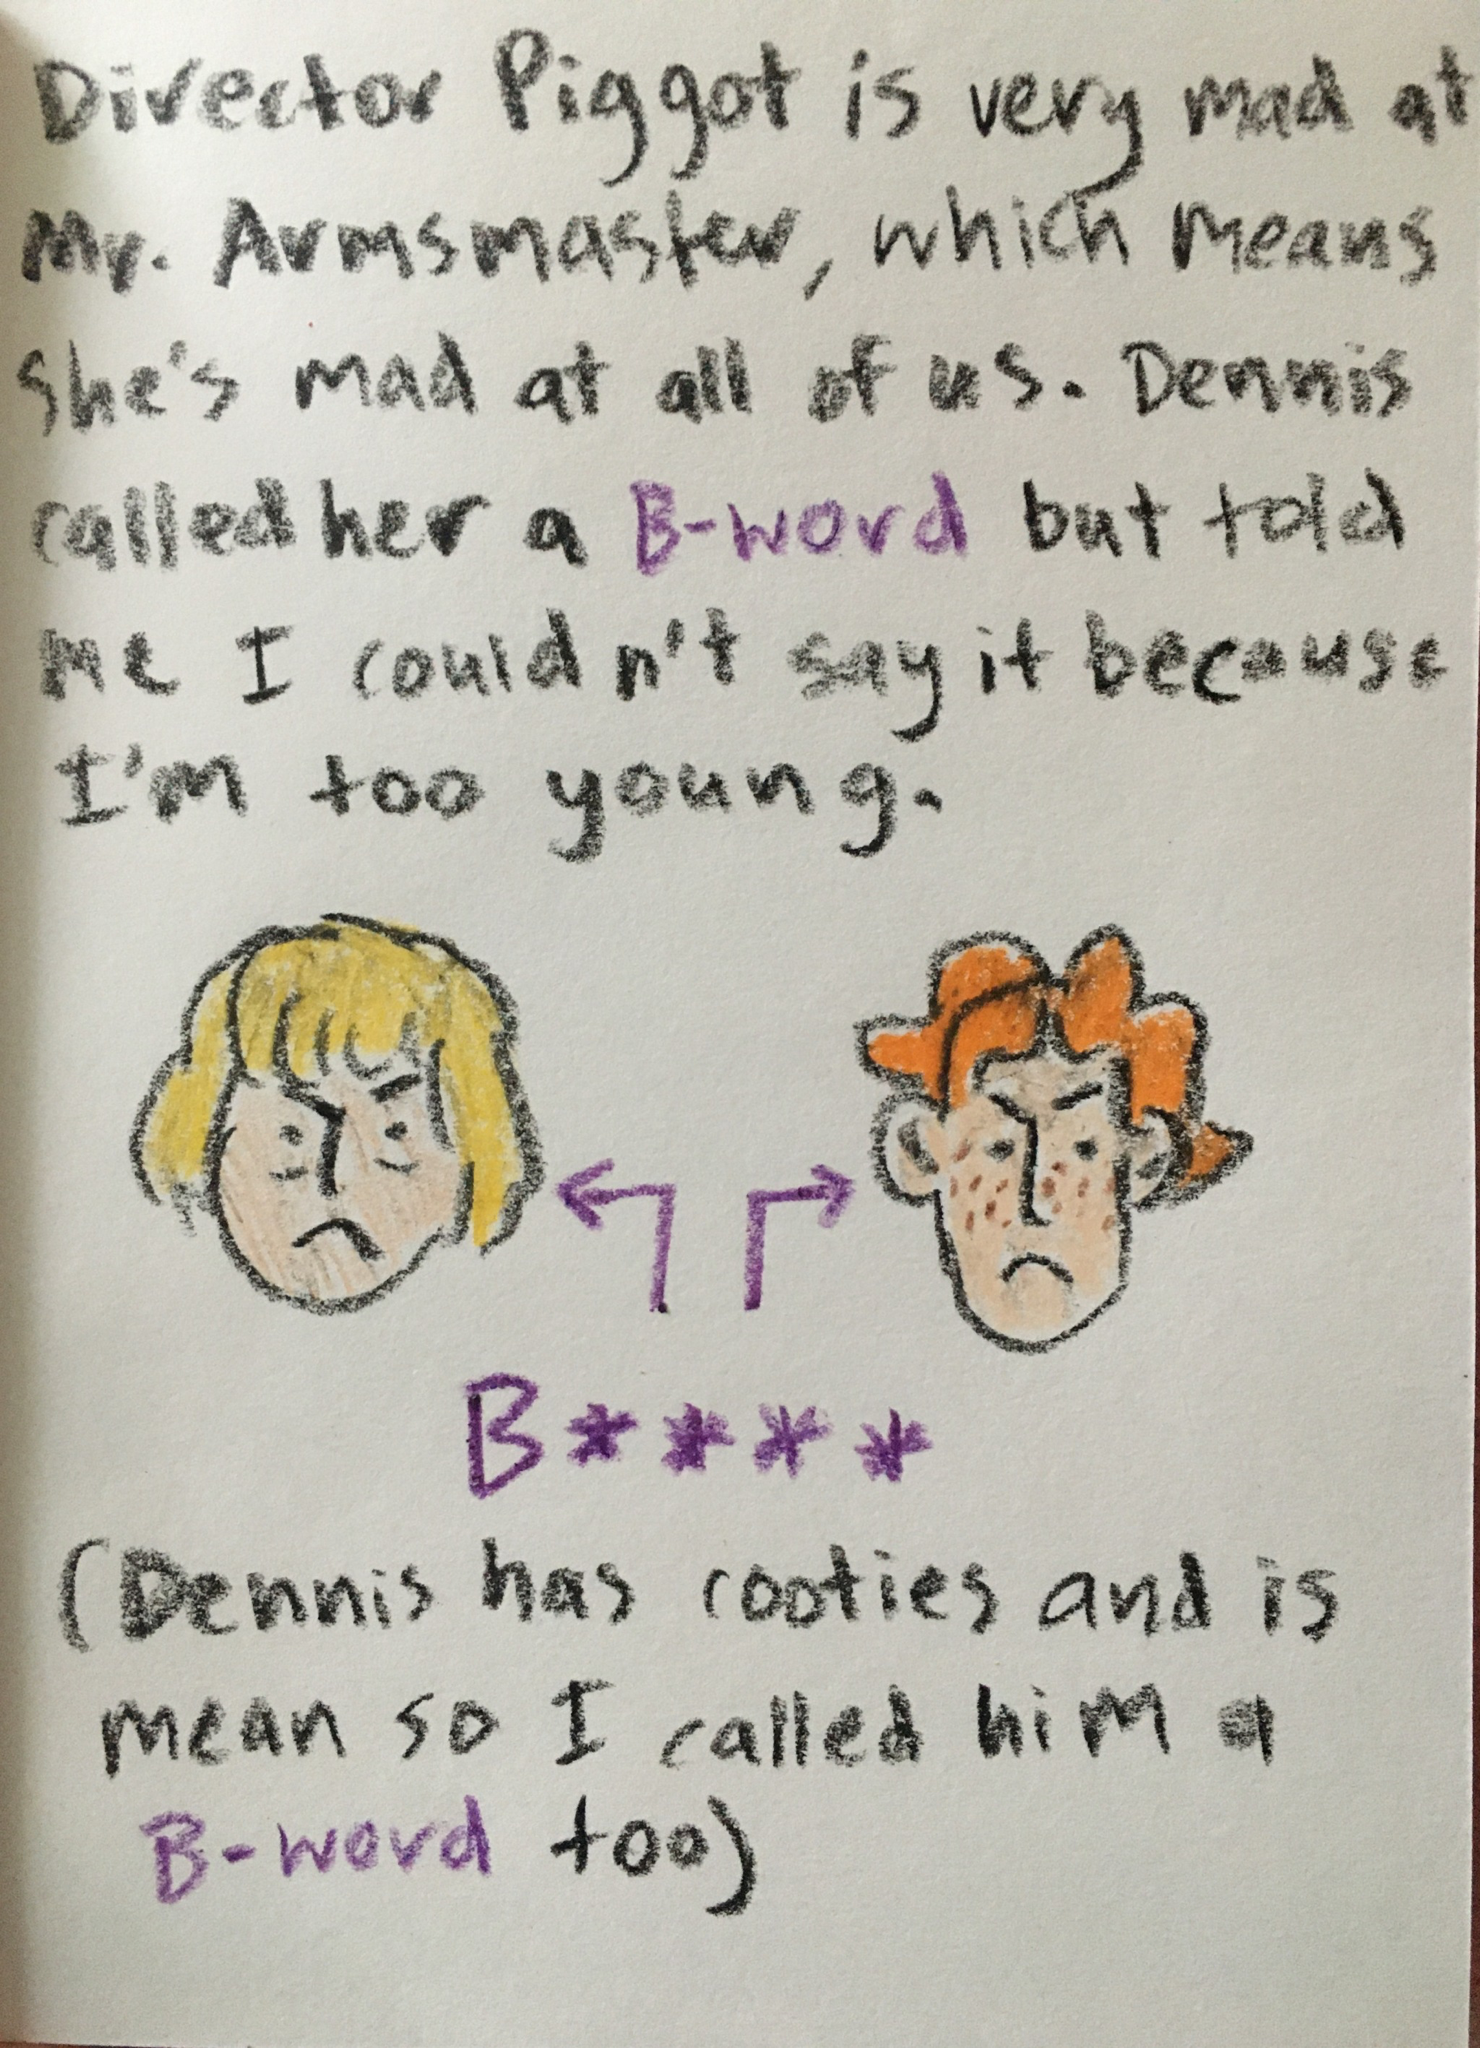 Director Piggot is very mad at
Mr. Armsmaster, which means
she's mad at all of us. Dennis
called her a B-word but told
me I couldn't say it because
I'm too young.
B****
(Dennis has cooties and is
mean so I called him a
B-word too)